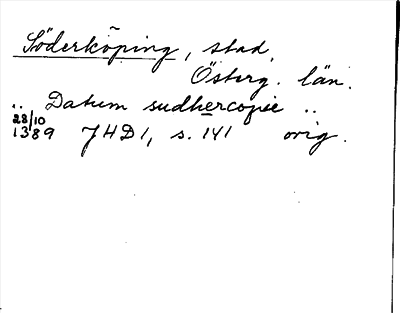 Söderköping, stad,
Österg. län.
.. Datum sudhercopie ..
28/10
1389 JHD1, s. 141 orig.